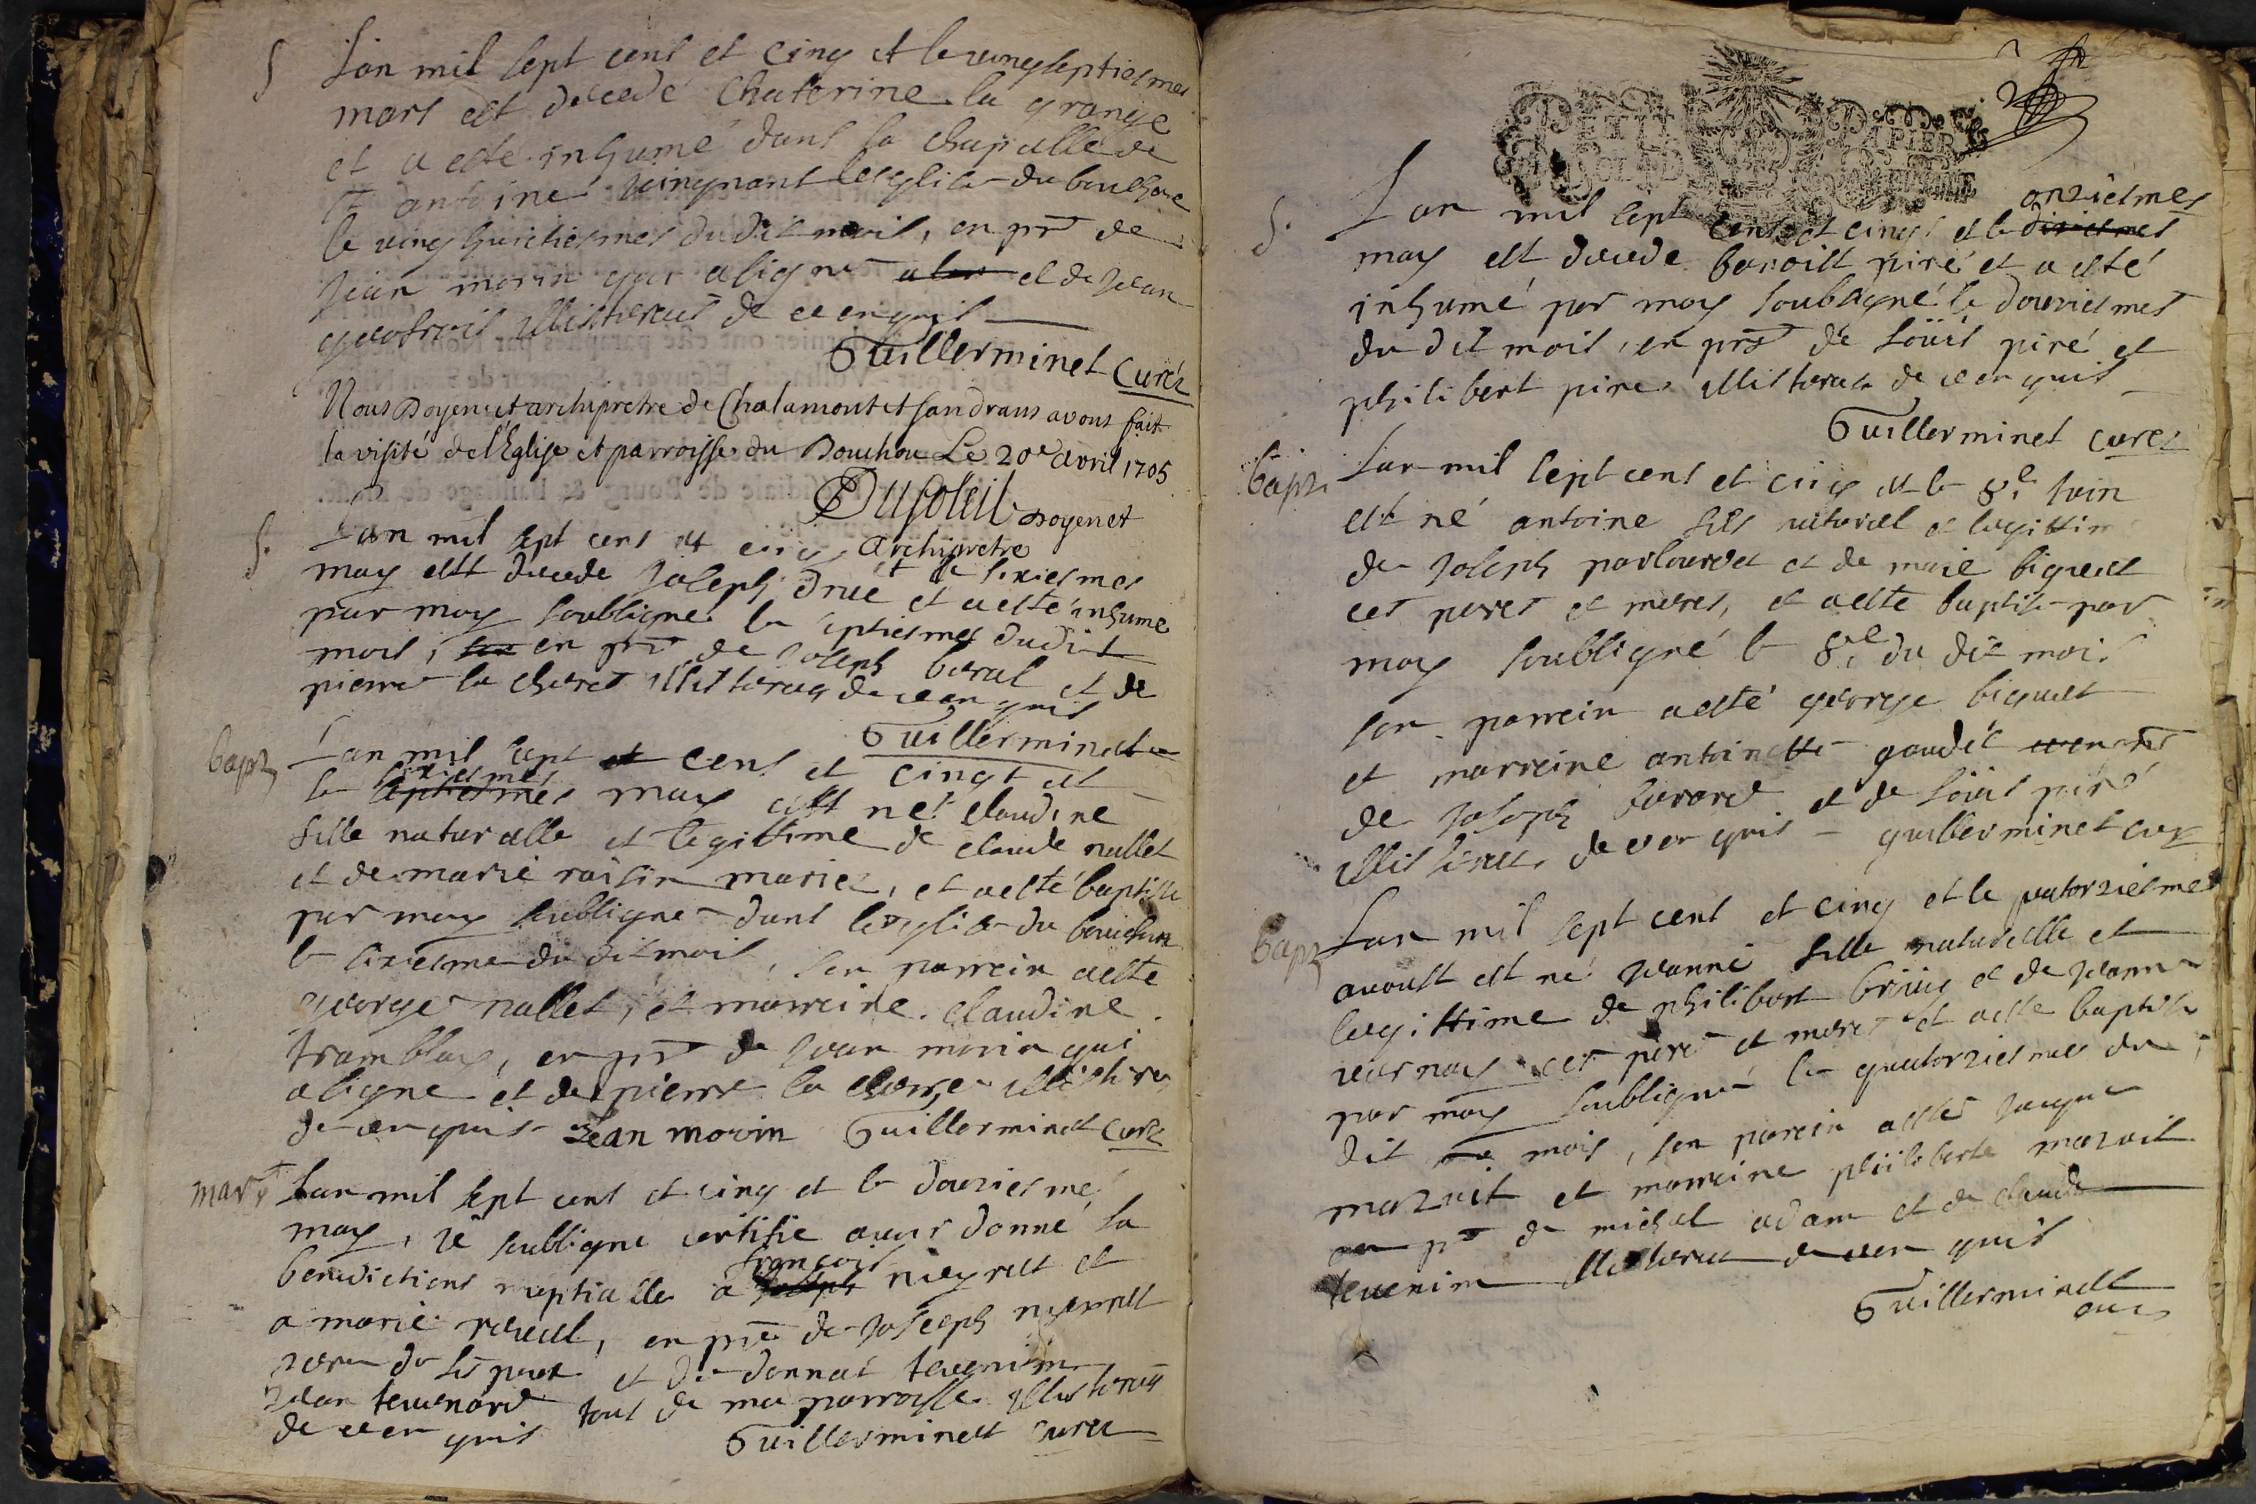 S Lan mil sept cens et cinq et le vingseptiesmes
mars est decedé Chaterine la grange
et a esté inhumé dans la chapelle de
St antoine joingnant lesglise du bouchou
le vingshuictiesmes dudit mois, en pnt de
jean morin qui a signé et de jean
illisteres de ce enquis
Guillerminet Curéz
Nous Doyen et archipretre de Chalamont et Sandrans avons fait
la visité de l'Eglise et parroisse du Bouchou Le 20e avril 1705
Dusoleil Doyen et
Archipretre
S. Lan mil sept cens et cinq et le sixiesmes
may est decede joseph drué et a esté inhumé
par moy soubsigne le septiesmes dudit
mois, en pnt de joseph beral et de
pierre la cherer illisteres de ce enquis
Guillerminet
bapz Lan mil sept cens et cinqt et
le sixiesmes
septiesmes may est né claudine
fille naturelle et legittime de claude nallet
et de marie raisin mariez, et a esté baptisée
par moy soubsigne dans lesglise du bouchou
le sixiesme du dit mois, son parrein a esté
george nallet, et marreine claudine
tramblay, en pnt de jean morin qui
a signe et de pierre la cherre illisteres
de ce enquis Jean morin Guillerminet Curéz
mary Lan mil sept cens et cinq et le douziesme
may, je soubsigne certifie avoir donné la
benedictions nuptialle a
françois
joseph niegret et
a marie revel, en pnt de joseph niegret
pere du dis et de donnat tevenin
jean tevenard tous de ma parroisse illisteres
de ce enquis Guillerminet curez
S. Lan mil sept cens et cinqs et le
onziesmes
dixiesmes
may est decede benoist piré et a esté
inhumé par moy soubsigné le douziesmes
du dit mois, en pnt de Loüis piré et
philibert pire illisteres de ce enquis
Guillerminet curez
bapz. Lan mil sept cens et cinq et le 8e juin
est né antoine fils naturel et legittime
de joseph parlouret et de marie biguet
ces peres et meres, et a esté baptisé par
moy soubsigné le 8e du dit mois
son parrein a esté george biguet
et marreine antoinette gaudét
de joseph berard et de Loüis piré
illisteres de ce enquis guillerminet curz
bapz Lan mil sept cens et cinq et le quatorziesmes
avoust est né jeanne fille naturelle et
legittime de philibert brüiy et de jeanne
vernay ces peres et meres et a esté baptisée
par moy soubsigné le quatorziesmes du
dit mois, son parein a esté jaque
mazuit et marreine philiberte mazuit
en pnt de michel adam et de claude
tevenin illisteres de ce enquis
Guillerminet
curz
PETIT PAPIER